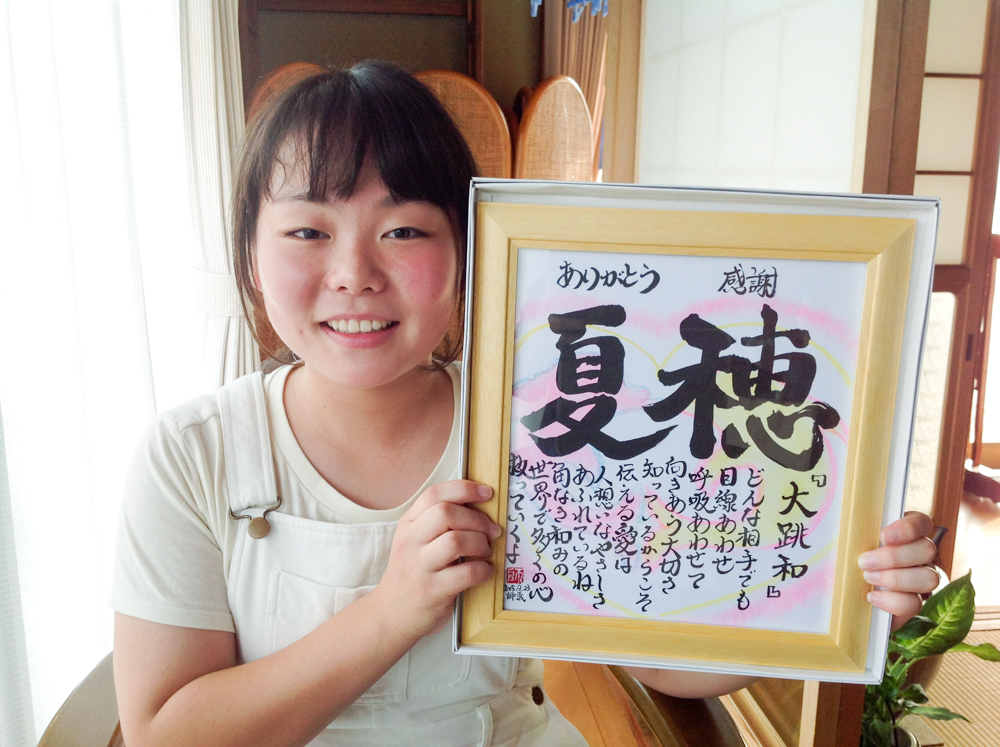 感謝
ありがとう
穂夏
『大跳和』
どんな相手でも
目線あわせ
呼吸あわせて
向きあう大切さ
知っているからこそ
伝える愛は
人想いなやさしさ
あふれているね
角なき和みの
世界で多くの心
救っていくよ